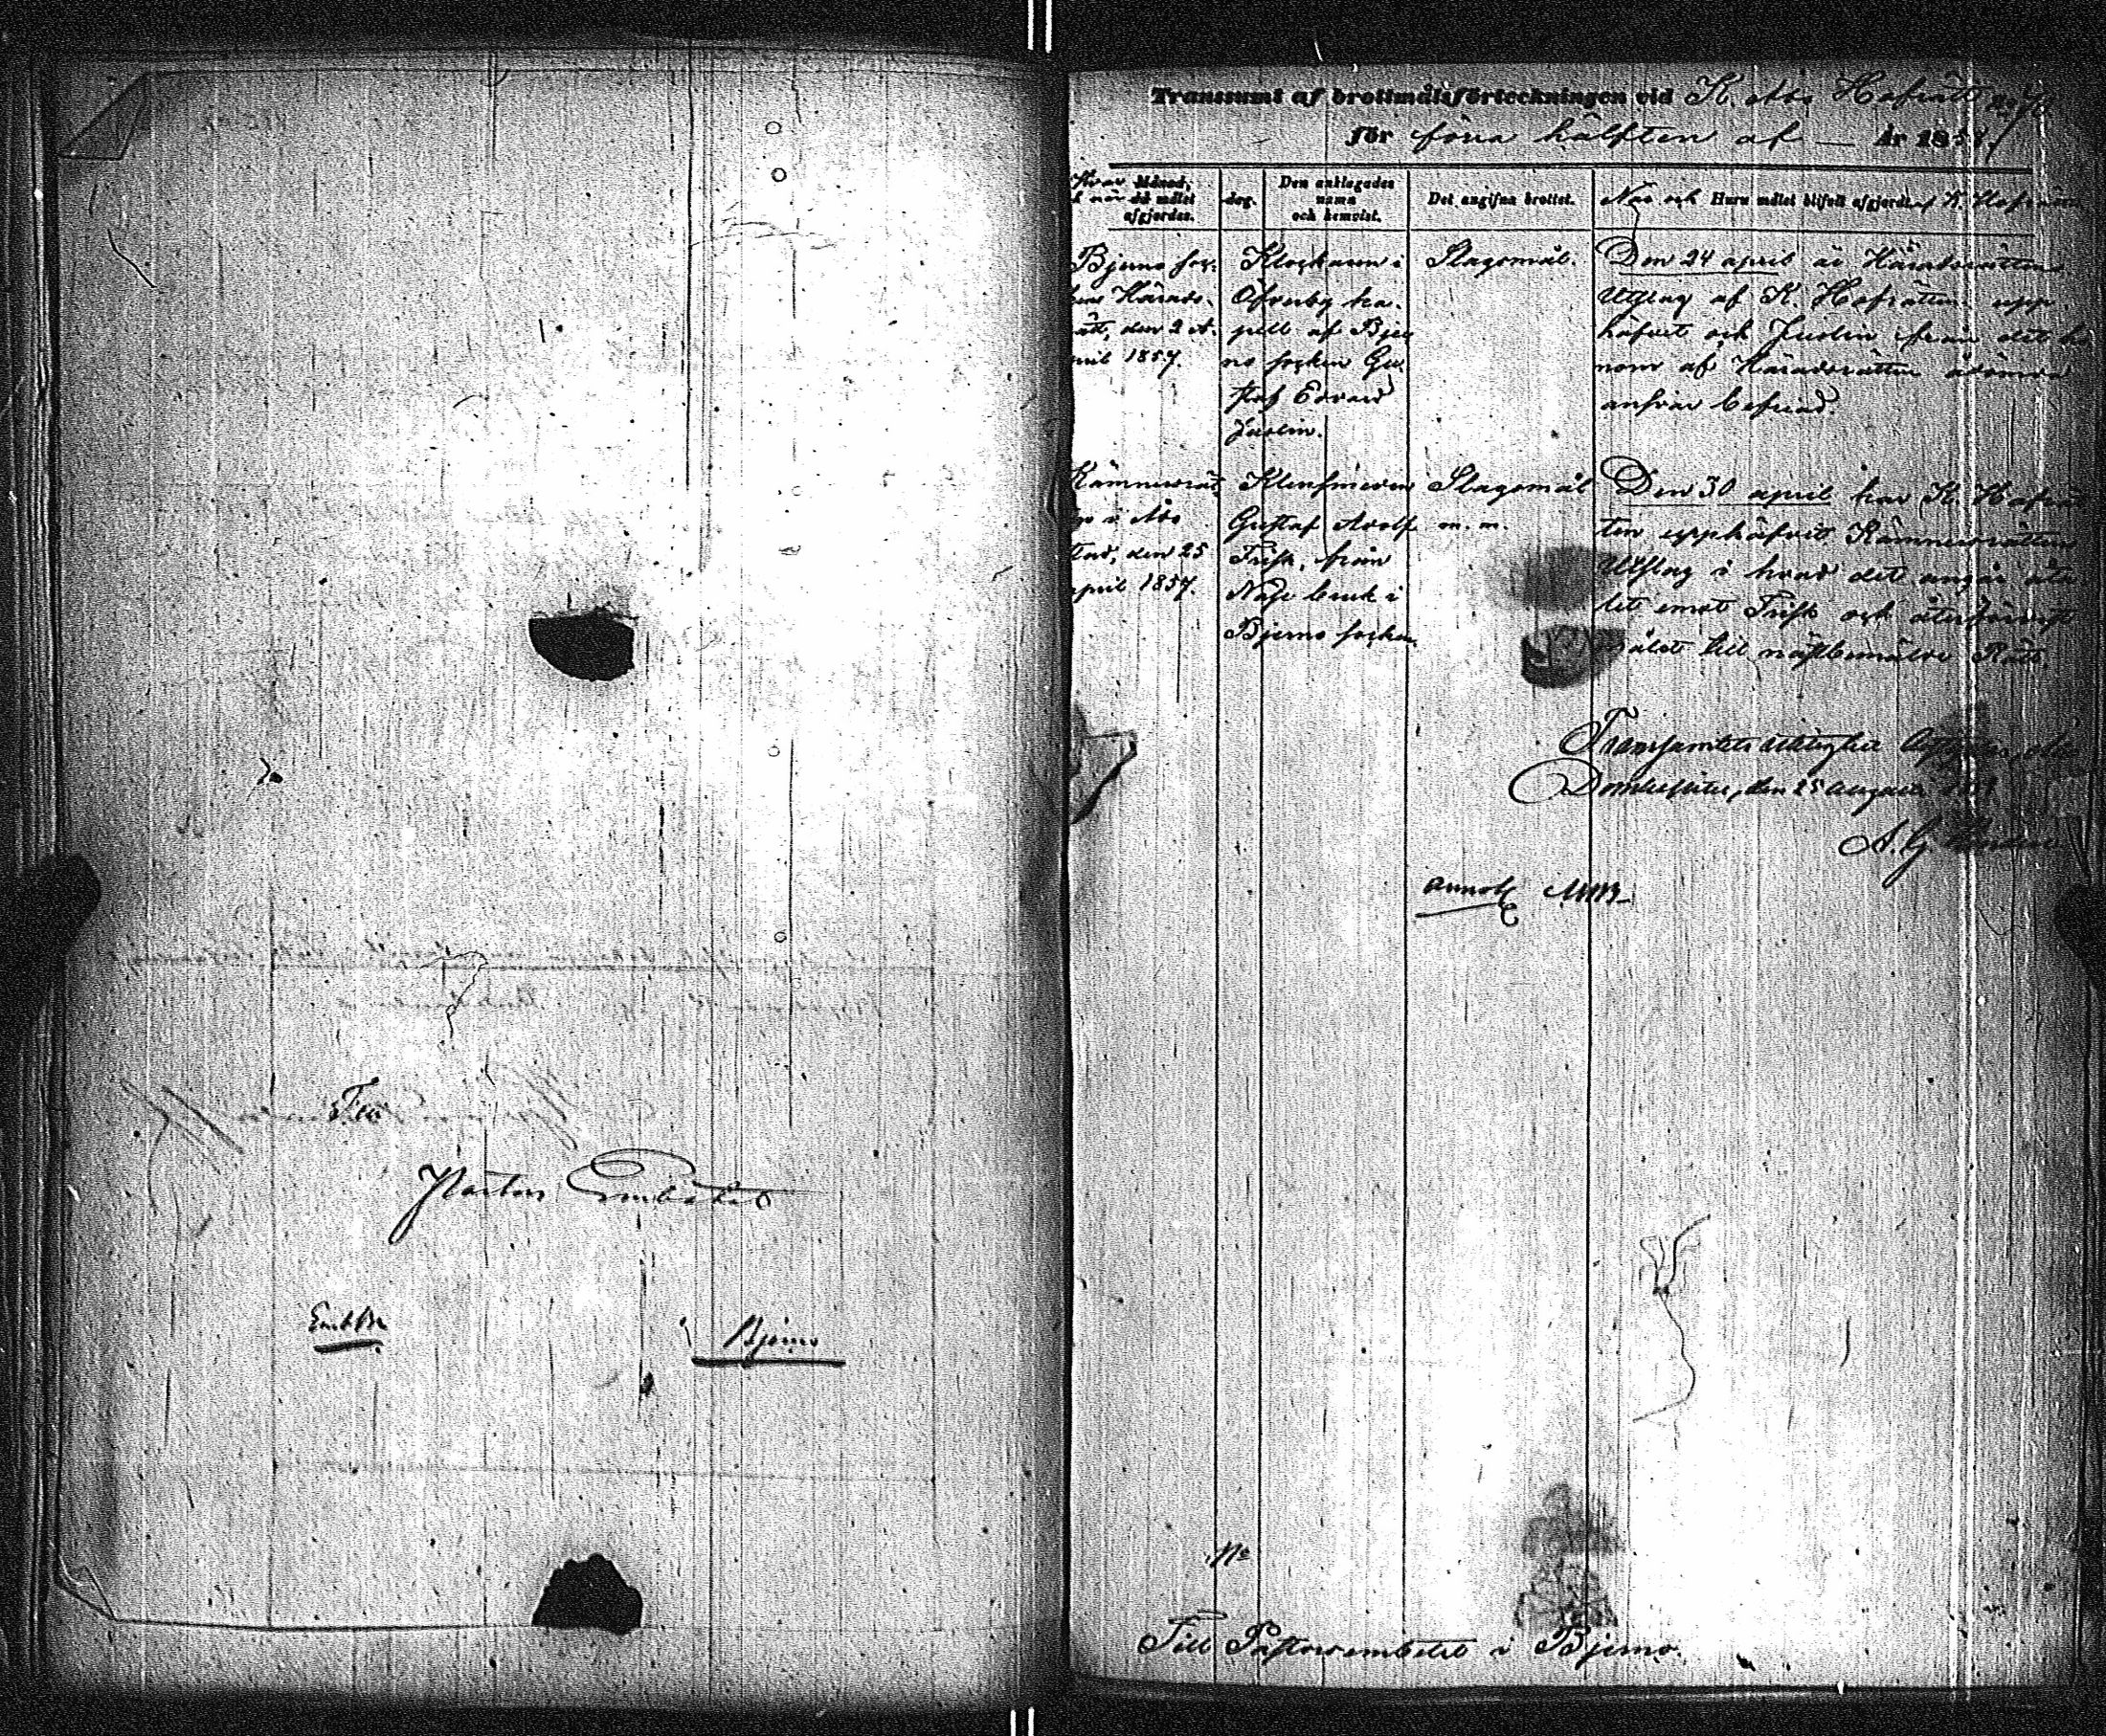 Till
Pastors Embetet
Emb Br
Bjerno
Transsumt af brottmålsförteckningen vid K. Åbo Hofrätt
för förra hälften af — år 1858.
Hvar Månad,
och när då målet
afgjordes.
dag.
Den anklagades
namn
och hemvist.
Det angifna brottet.
När och Huru målet blifvit afgjordt af K. Hofrätten
Bjerno soc-
kens Härads-
rätt, den 2 A-
pril 1857.
Klockaren i
Öfverby ka-
pell af Bjer
no socken Gu-
staf Edvard
Juslin.
Slagsmål.
Den 24 april är Häradsrättens
Utslag af K. Hofrätten upp
häfvet och Juslin från det ho
nom af Häradsrätten ådömda
ansvar befriad.
Kämnersrät-
ten i Åbo
stad, den 25
april 1857.
Klensmeden
Gustaf Adolf
Frisk, från
Näse bruk i
Bjerno socken.
Slagsmål
m. m.
Den 30 april har K. Hofrät
ten upphäfvit Kämnersrättens
Utslag i hvad det angår åta
let emot Frisk och återförvist
målet till nästbemälde Rätt.
Transsumtets riktighet betygar, Åbo
Domkapitel, den 25 Augusti 1858
A. G.
Annot
No
Till Pastorsembetet i Bjerno.